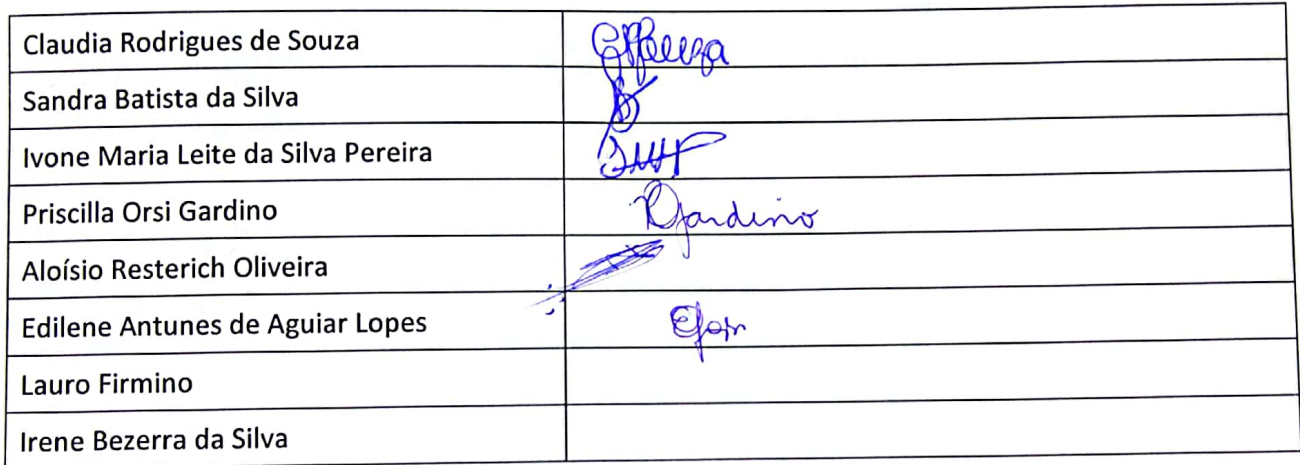 Claudia Rodrigues de Souza
Sandra Batista da Silva
Ivone Maria Leite da Silva Pereira
Priscilla Orsi Gardino Gardino
Aloísio Resterich Oliveira
Edilene Antunes de Aguiar Lopes
Lauro Firmino
Irene Bezerra da Silva